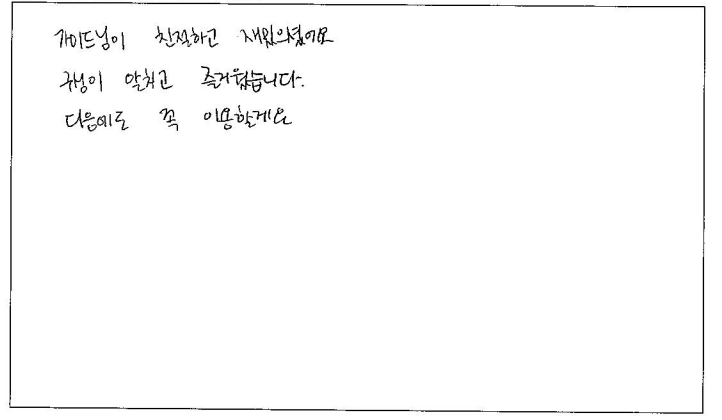 가이드님이 친절하고 재밌으셨어요
구성이 알차고 즐거웠습니다.
다음에도 꼭 이용할게요